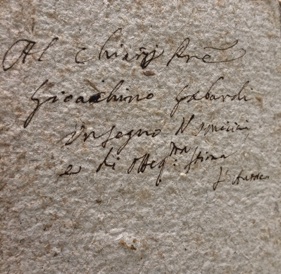 Al Chiariss Prē
Gioachino Gabardi
in segno d'amicizia
e di osseq.ma stima
L'Autore